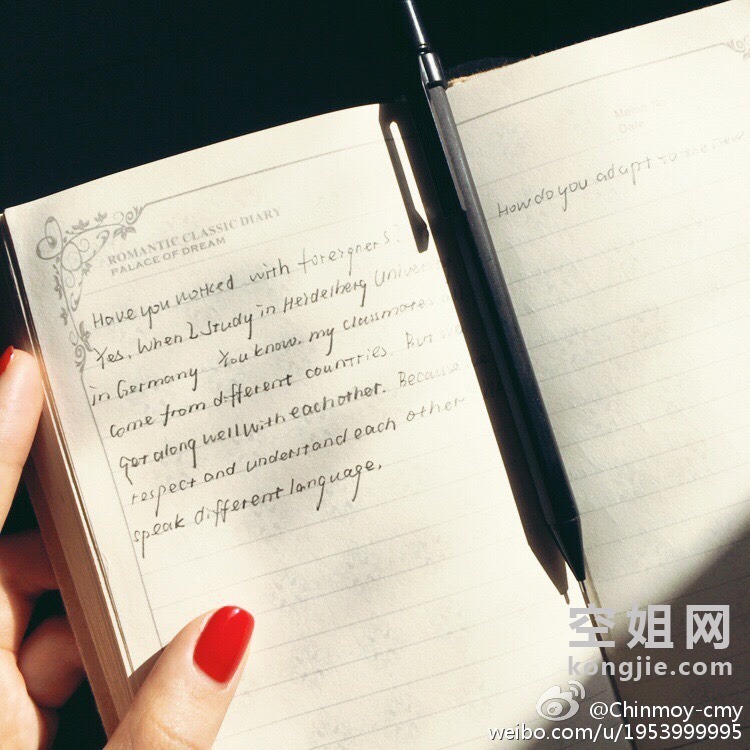 ROMANTIC CLASSIC DIARY
PALACE OF DREAM
Have you worked with foreigners?
Yes. When I study in Heidelberg Univer
in Germany You know. my classmates
come from different countries. But
get along well with each other. Because
respect and understand each other
speak different language.
Date
How do you adapt to the new
空姐网
kongjie.com
@Chinmoy-cmy
weibo.com/u/1953999995